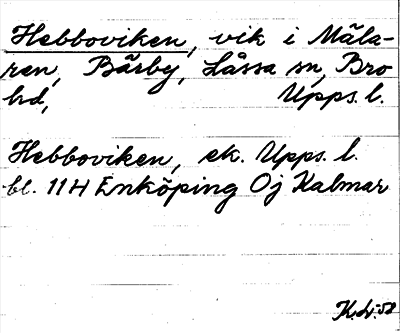 Hebboviken, vik i Mäla-
ren, Bärby, Låssa sn, Bro
hd, Upps. l.
Hebboviken, ek. Upps. l.
bl. 11H Enköping Oj Kalmar